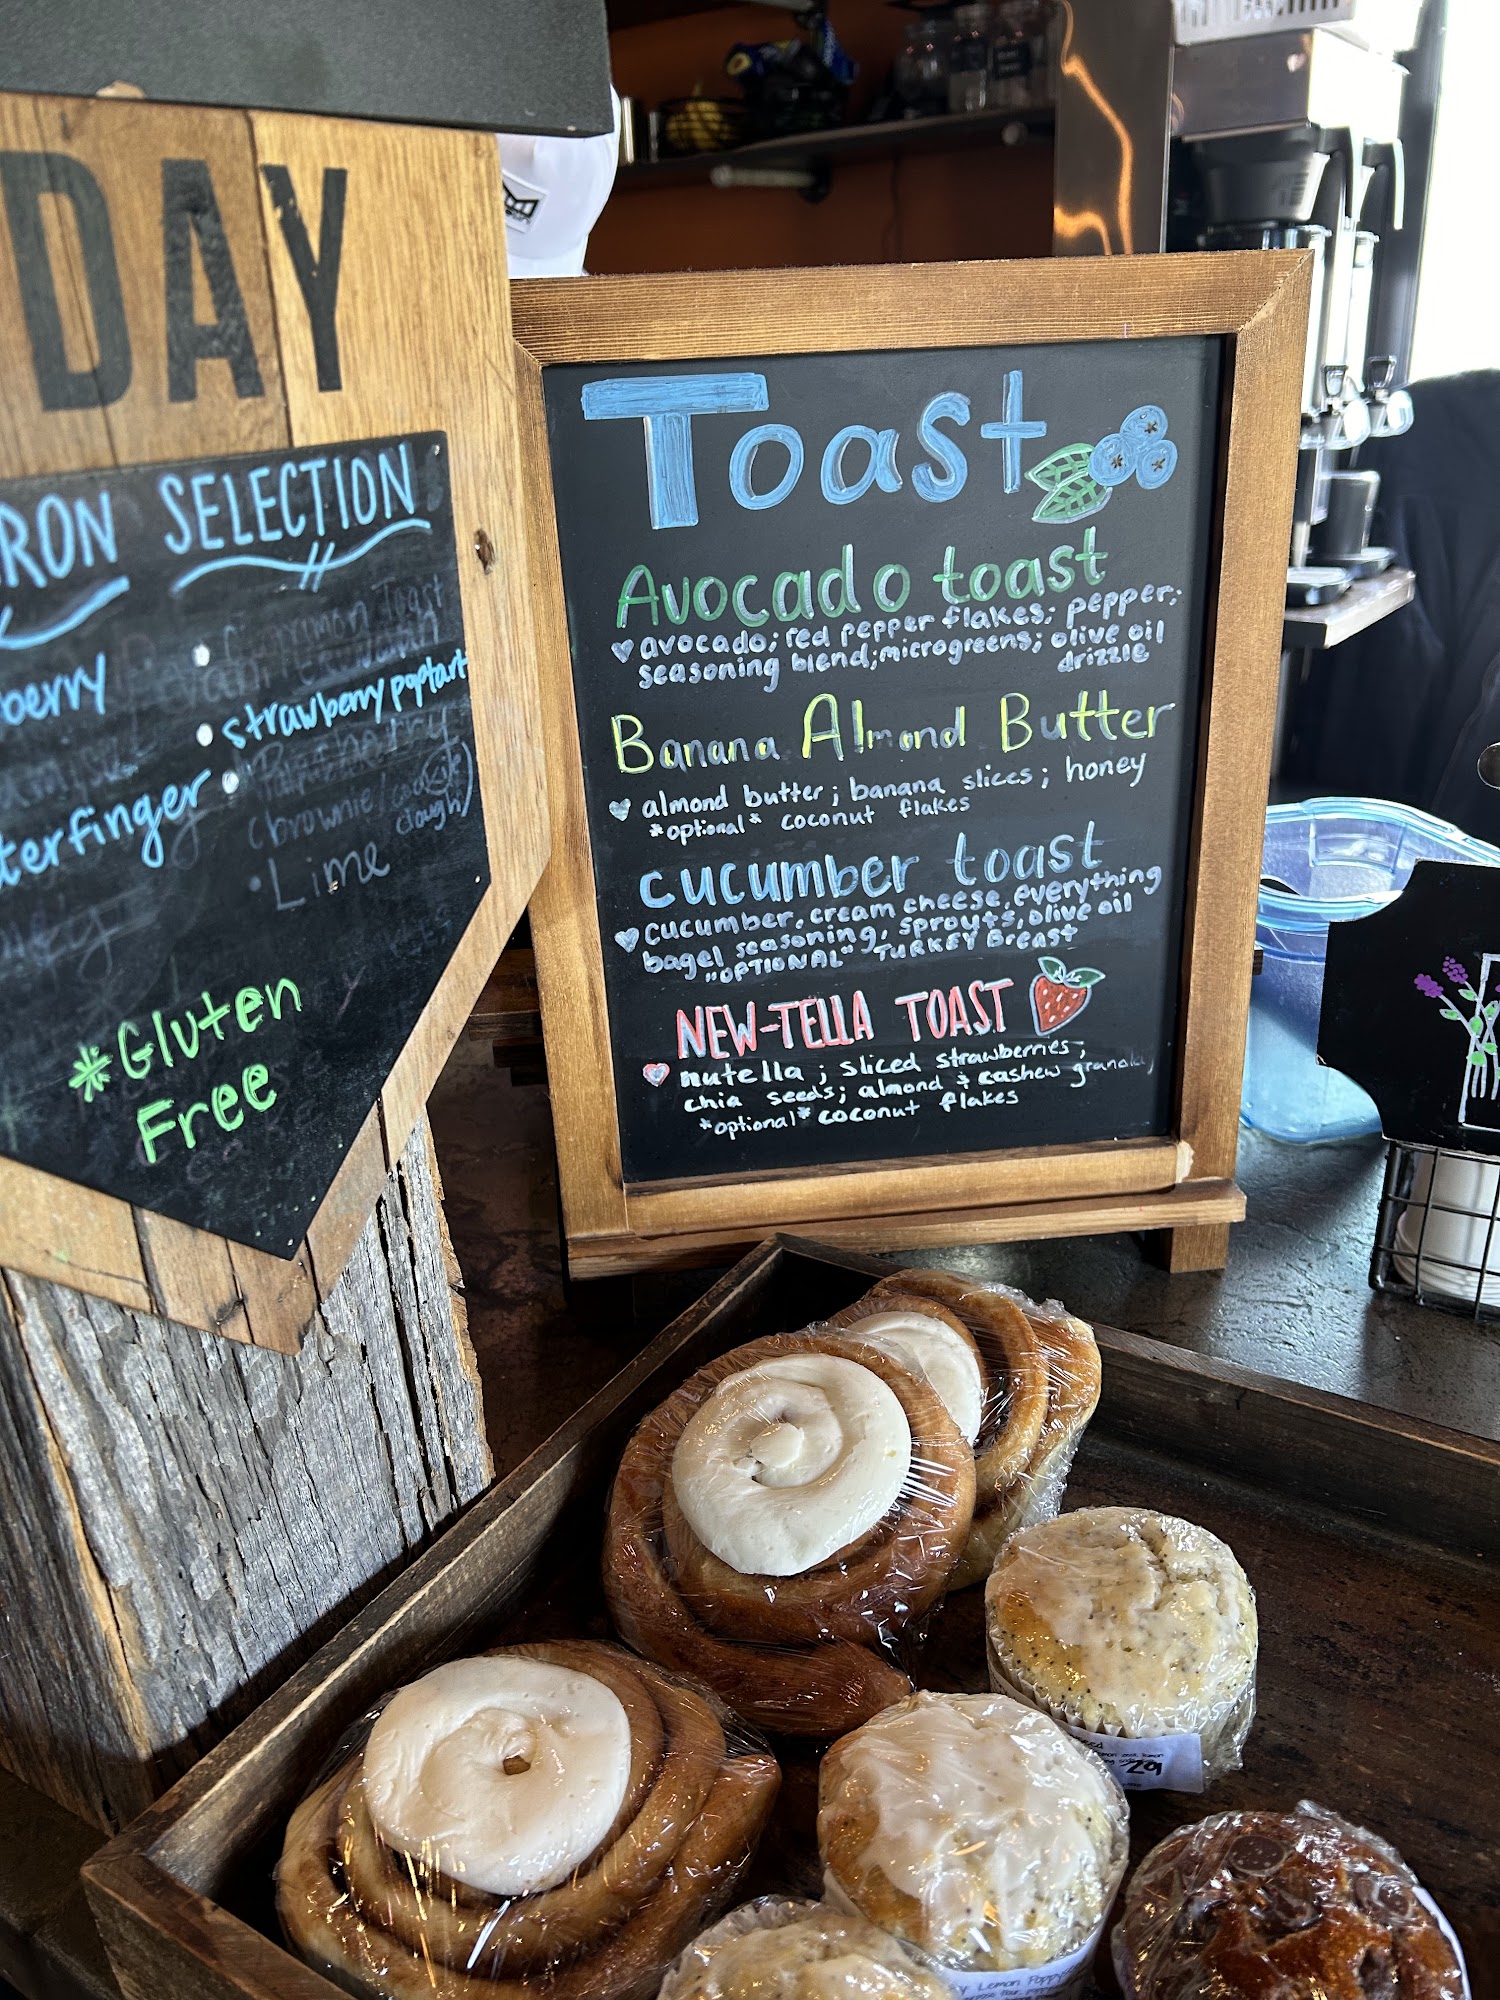 DAY
RON SELECTION
berry
Cinnamon Toast
strawberry poptart
terfinger
(brownie/cookie
dough)
Lime
*Gluten
Free
Toast
Avocado toast
avocado; red pepper flakes; pepper;
seasoning blend; microgreens; olive oil
drizzle
Banana Almond Butter
almond butter; banana slices; honey
*optional* coconut flakes
cucumber toast
cucumber, cream cheese, everything
bagel seasoning, sprouts, olive oil
"OPTIONAL" TURKEY Breast
NEW-TELLA TOAST
nutella; sliced strawberries;
chia seeds; almond & cashew granola;
*optional* coconut flakes
Lemon Poppy